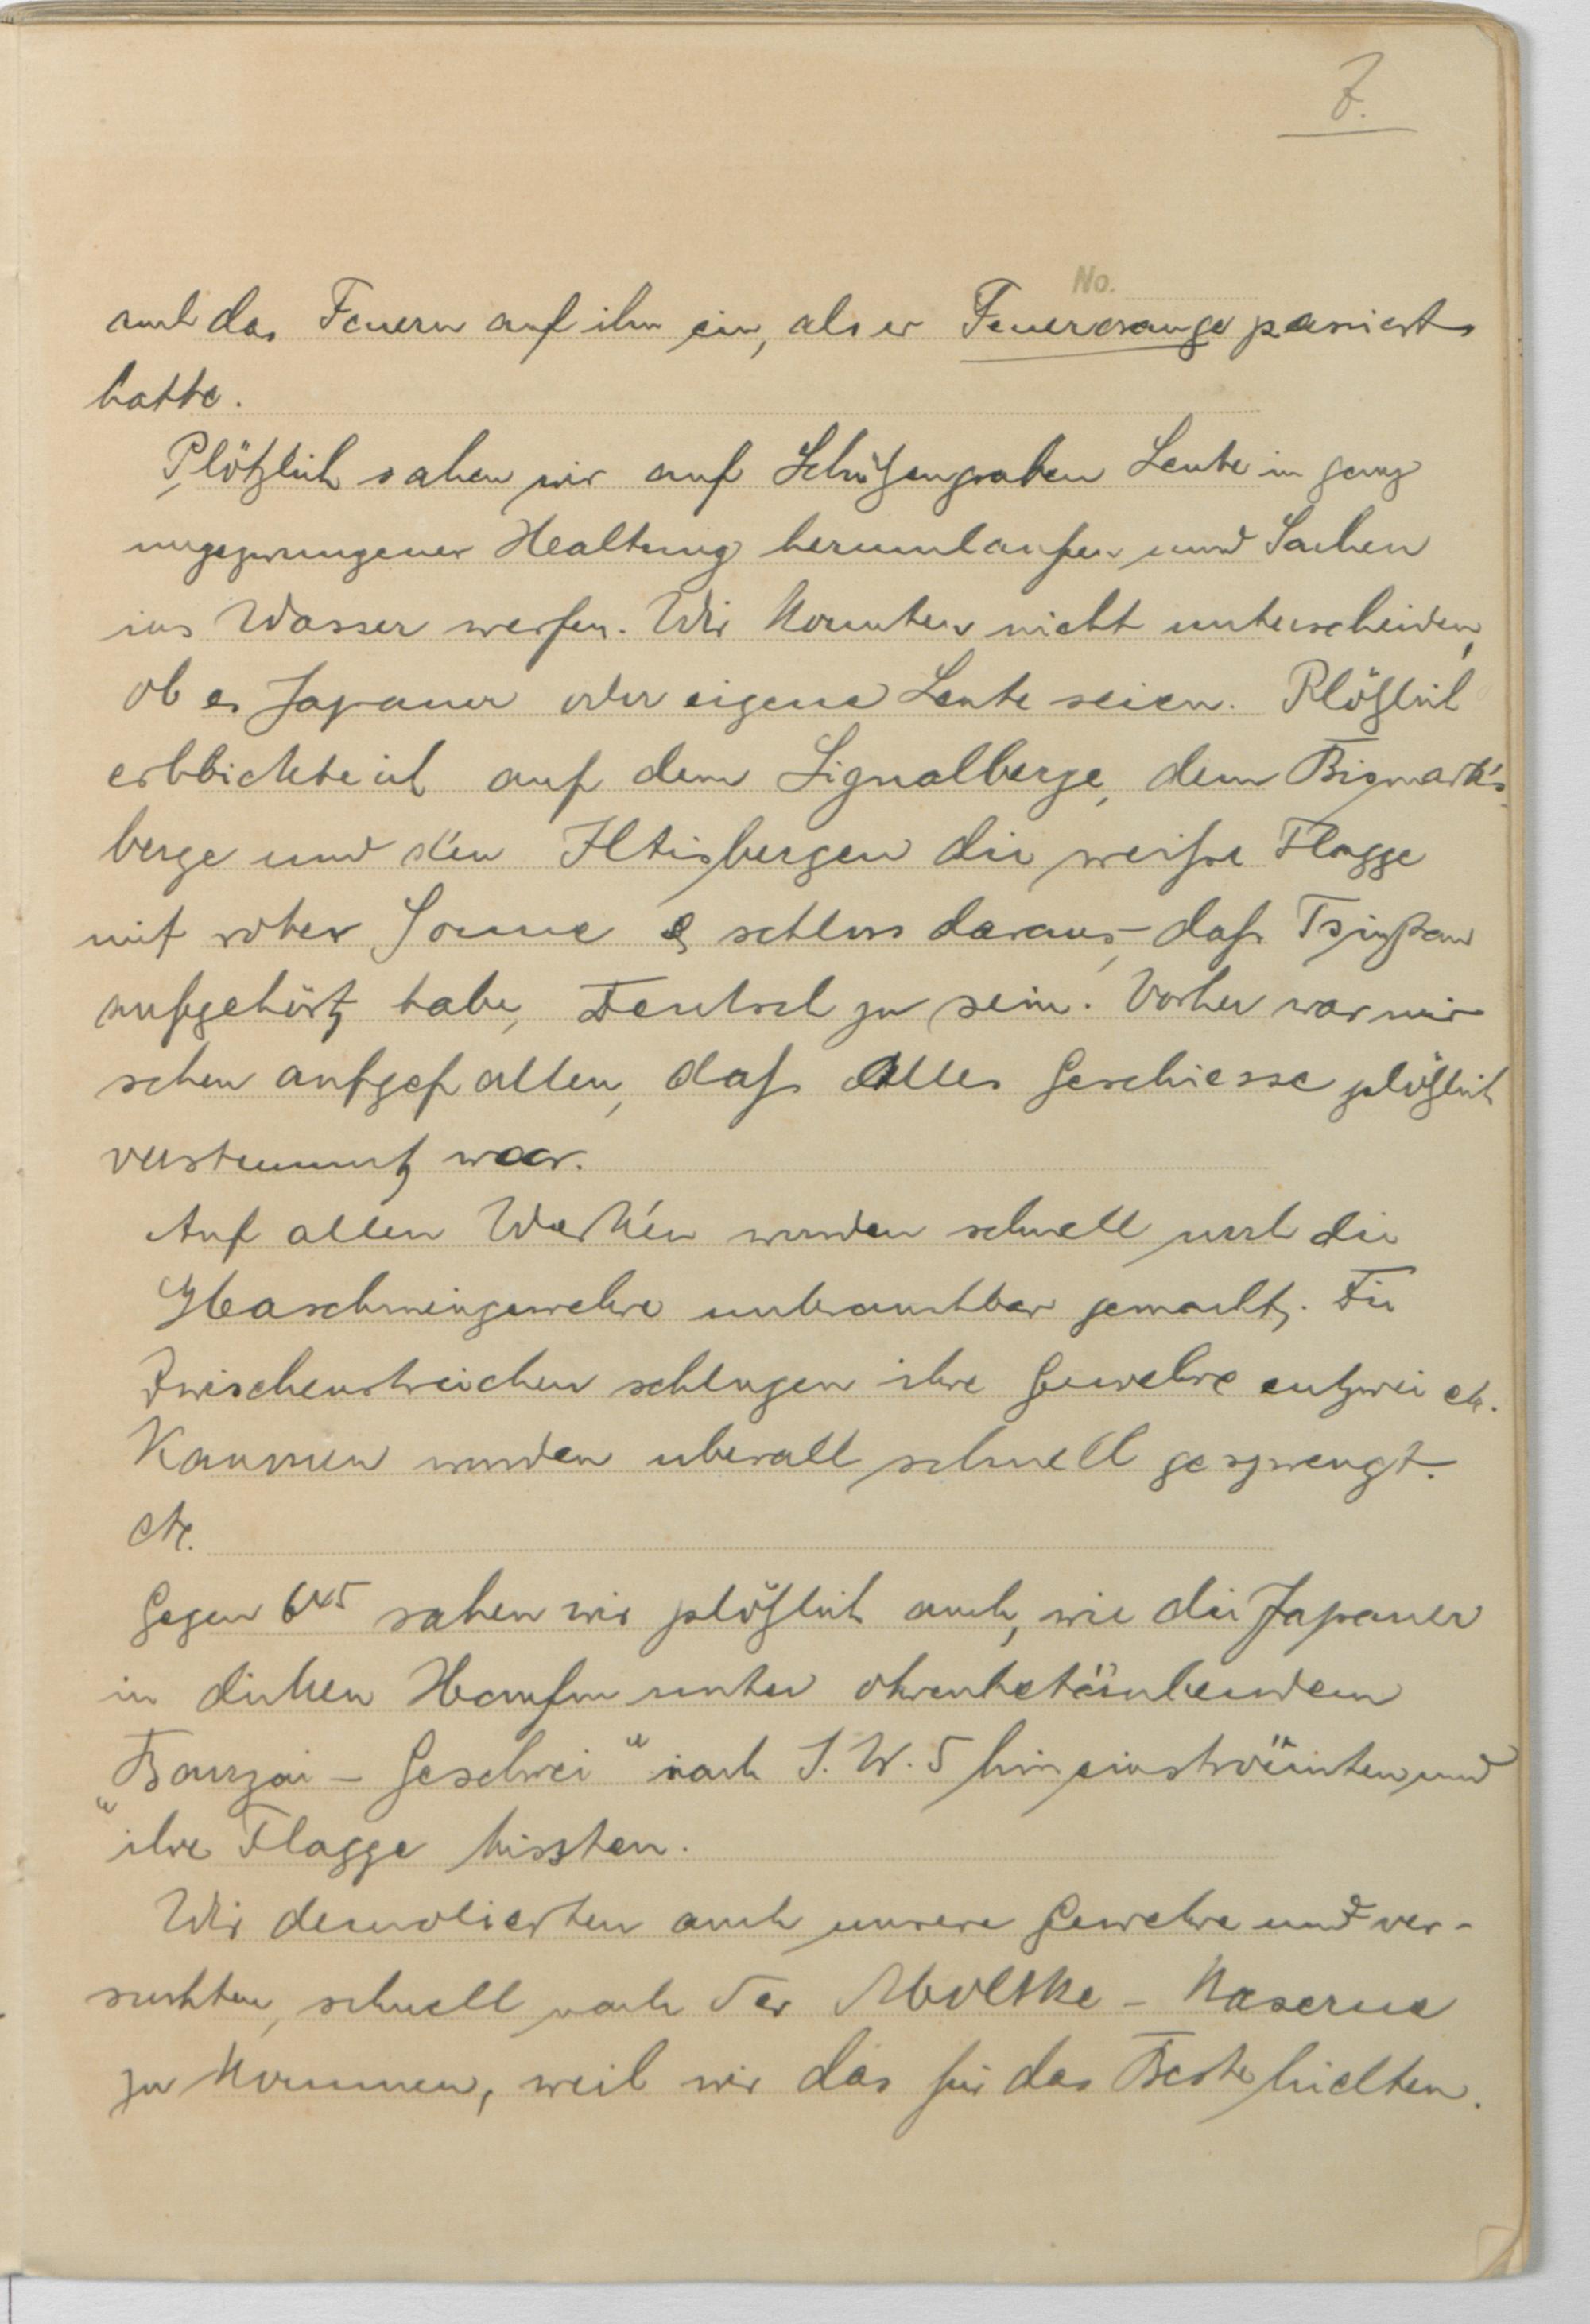 7.
No.
auch das Feuern auf ihn ein, als er Feuerorange passiert
hatte.
Plötzlich sahen wir auf Schützengraben Leute in ganz
ungezwungener Healtung herumlaufen und Sachen
ins Wasser werfen. Wir konnten nicht unterscheiden,
ob es Japaner oder eigene Leute seien. Plötzlich
erblickte ich auf dem Signalberge, dem Bismarks-
berge und den Iltisbergen die weiße Flagge
mit roter Sonne & schloss daraus, daß Tsingtau
aufgehört habe, Deutsch zu sein. Vorher war mir
schon aufgefallen, daß Alles Geschiesse plötzlich
verstummt war.
Auf allen Werken wurden schnell noch die
Maschinengewehre unbrauchbar gemacht. Die
Zwischenstreichen schlugen ihre Gewehre entzwei etc.
Kanonen wurden uberall schnell gesprengt.
etc.
Gegen 6 45 sahen wir plötzlich auch, wie die Japaner
in dicken Haufen unter ohrenbetäubendem
„Banzai - Geschrei“ nach I. W. 5 hineinströmten und
ihre Flagge hissten.
Wir demolierten auch unsere Gewehre und ver-
suchten, schnell nach der Moltke - Kaserne
zu kommen, weil wir das für das Beste hielten.